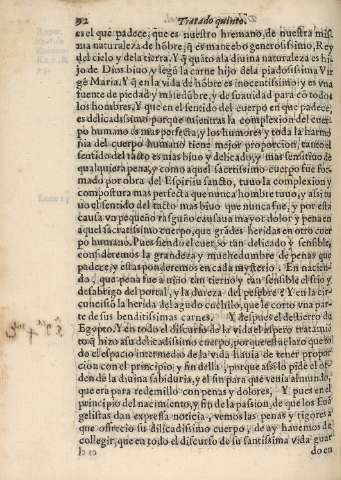 92 Tratado quinto.
es el que padece, que es nuestro hermano, de nuestra mis
ma naturaleza de hõbre, q̃ es mancebo generosissimo, Rey
del cielo y dela tierra. Y q̃ quãto ala diuina naturaleza es hi
jo de Dios biuo, y segũ la carne hijo dela piadosissima Vir
gẽ Maria. Y q̃ en la vida de hõbre es inocentissimo, y es vna
fuente de piedad y mansedũbre, y de suauidad para cõ todos
los hombres. Y que en el sentido del cuerpo en que padece,
es delicadissimo porque mientras la complexion del cuer
po humano es mas perfecta, y los humores y toda la harmo
nia del cuerpo humano tiene mejor proporcion, tanto el
sentido del tacto es mas biuo y delicado, y mas sensitiuo de
qualquiera pena, y como aquel sacratissimo cuerpo fue for
mado por obra del Espiritu sancto, tuuo la complexion y
compostura mas perfecta que nunca hombre tuuo, y assi tu
uo el sentido del tacto mas biuo que nunca fue, y por esta
causa vn pequeño rasguño causaua mayor dolor y pena en
aquel sacratissimo cuerpo, que grãdes heridas en otro cuer
po humano. Pues siendo el cuerpo tan delicado y sensible,
consideremos la grandeza y muchedumbre de penas que
padece, y estas ponderemos en cada mysterio. En nacien-
do, que pena fue a niño tan tierno y tan sensible el frio y
desabrigo del portal, y la dureza del pesebre? Y en la cir-
cuncisiõ la herida del agudo cuchillo, que le corto vna par-
te de sus benditissimas carnes. Y despues el destierro de
Egypto. Y en todo el discurso de la vida el aspero tratamiẽ
to q̃ hizo a su delicadissimo cuerpo, porque esta claro que to
do el espacio intermedio de la vida hauia de tener propor
cion con el principio, y fin della, porque assi lo pide el or-
den de la diuina sabiduria, y el fin para que venia al mundo,
que era para redemillo con penas y dolores. Y pues en el
principio del nacimiento, y fin de la passion, de que los Euã
gelistas dan expressa noticia, vemos las penas y rigores a
que offrecio su dilicadissimo cuerpo, de ay hauemos de
collegir, que en todo el discurso de su santissima vida guar
do en